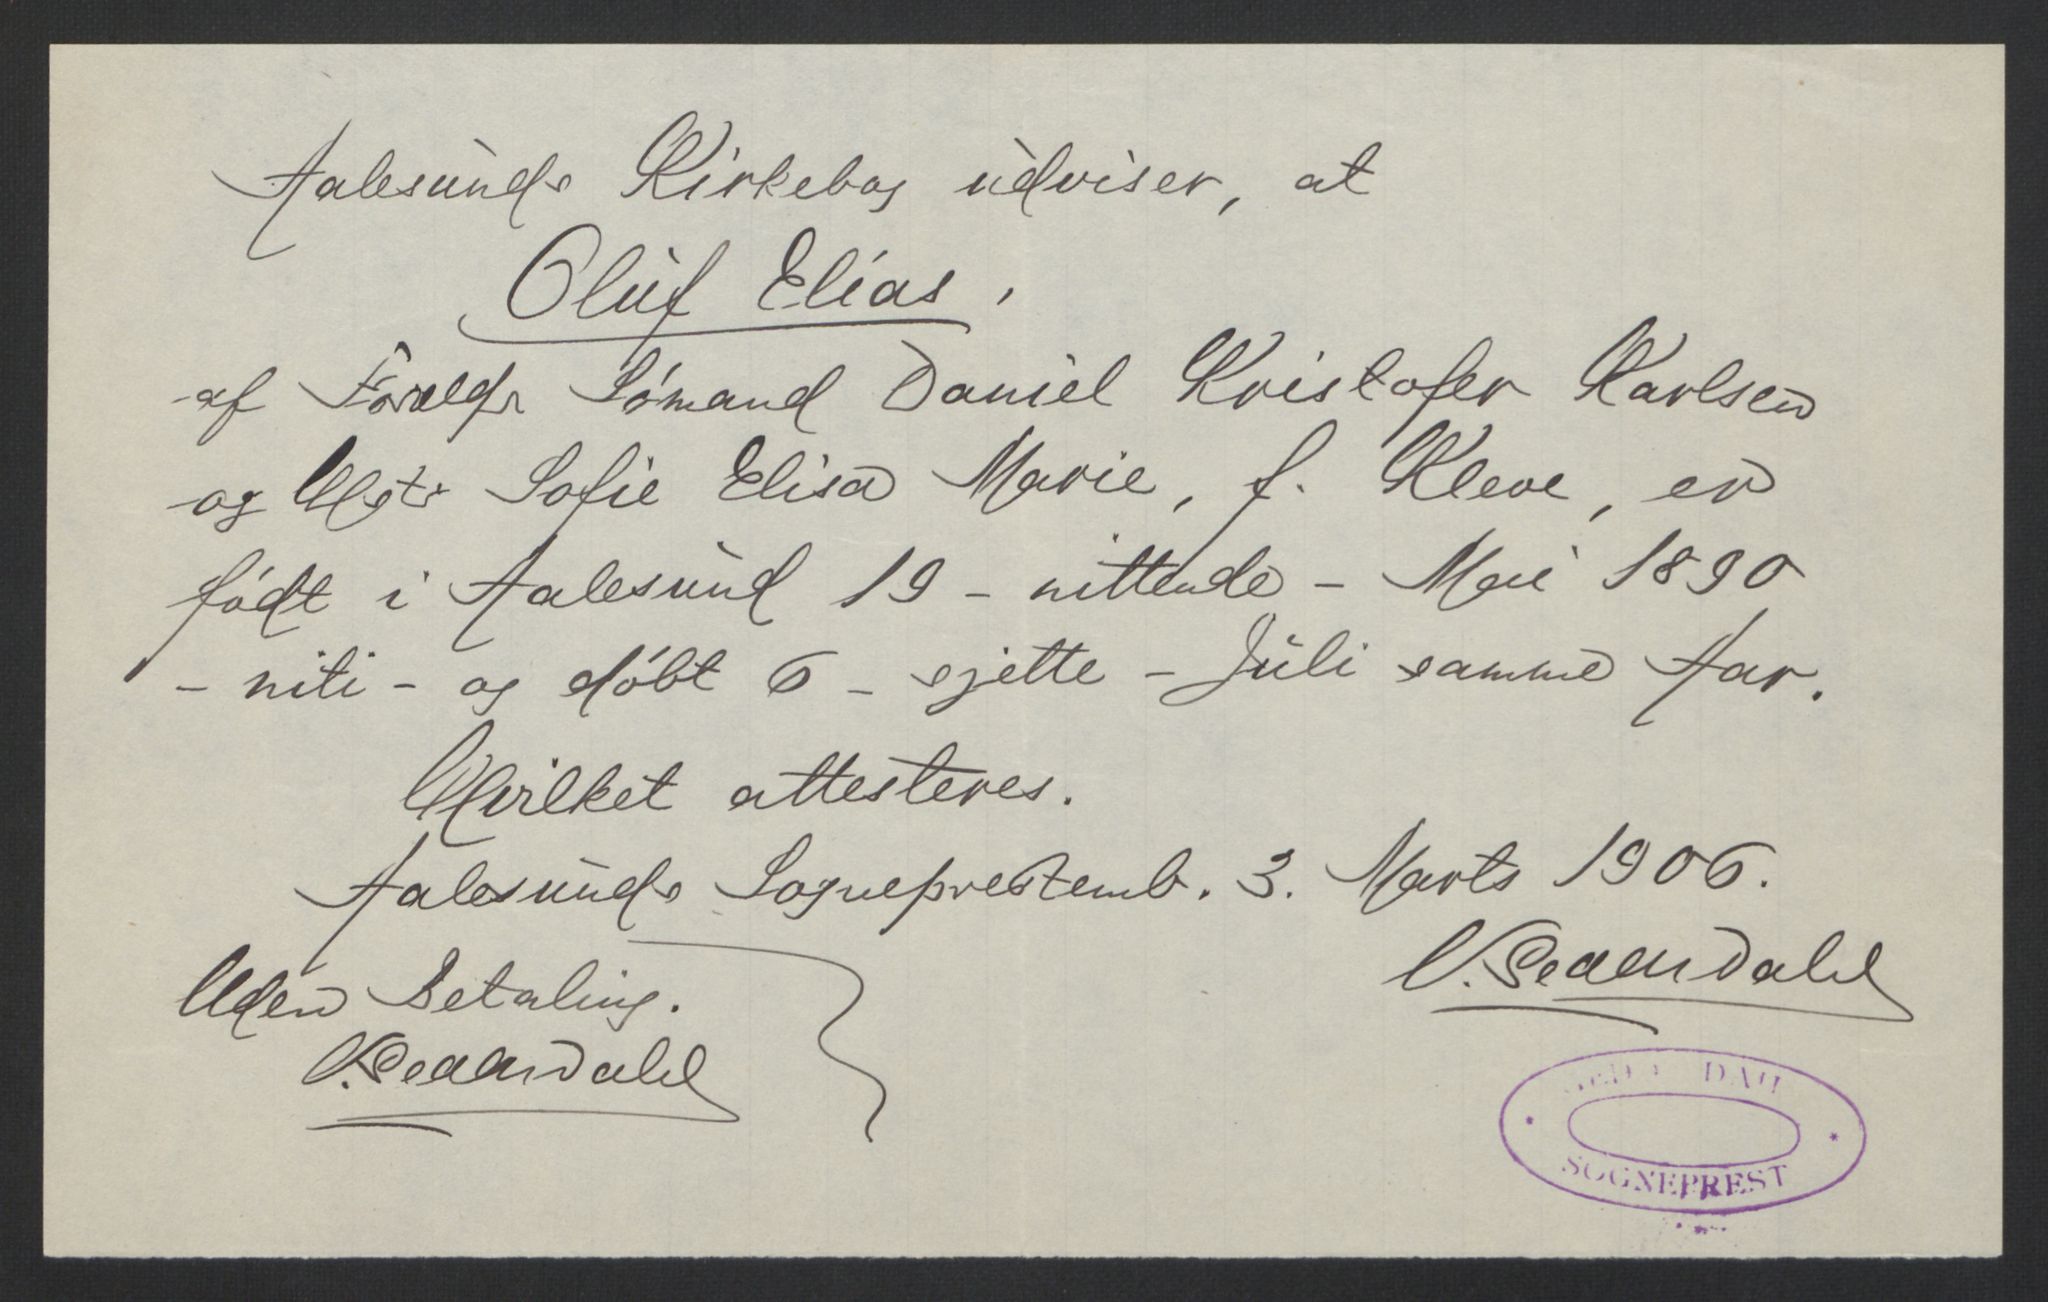 Aalesunds Kirkebog udviser, at
Oluf Elias,
af Foræld: Sømand Daniel Kristofer Karlsen
og Hst: Sofie Elisa Marie, f. Kleve, er
født i Aalesund 19 - nittende - Mai 1890
- niti - og døbt 6 - sjette - Juli samme Aar.
Hvilket attesteres.
Aalesunds Sogneprestemb. 3. Marts 1906.
Uden Betaling.
DAH
SOGNEPREST